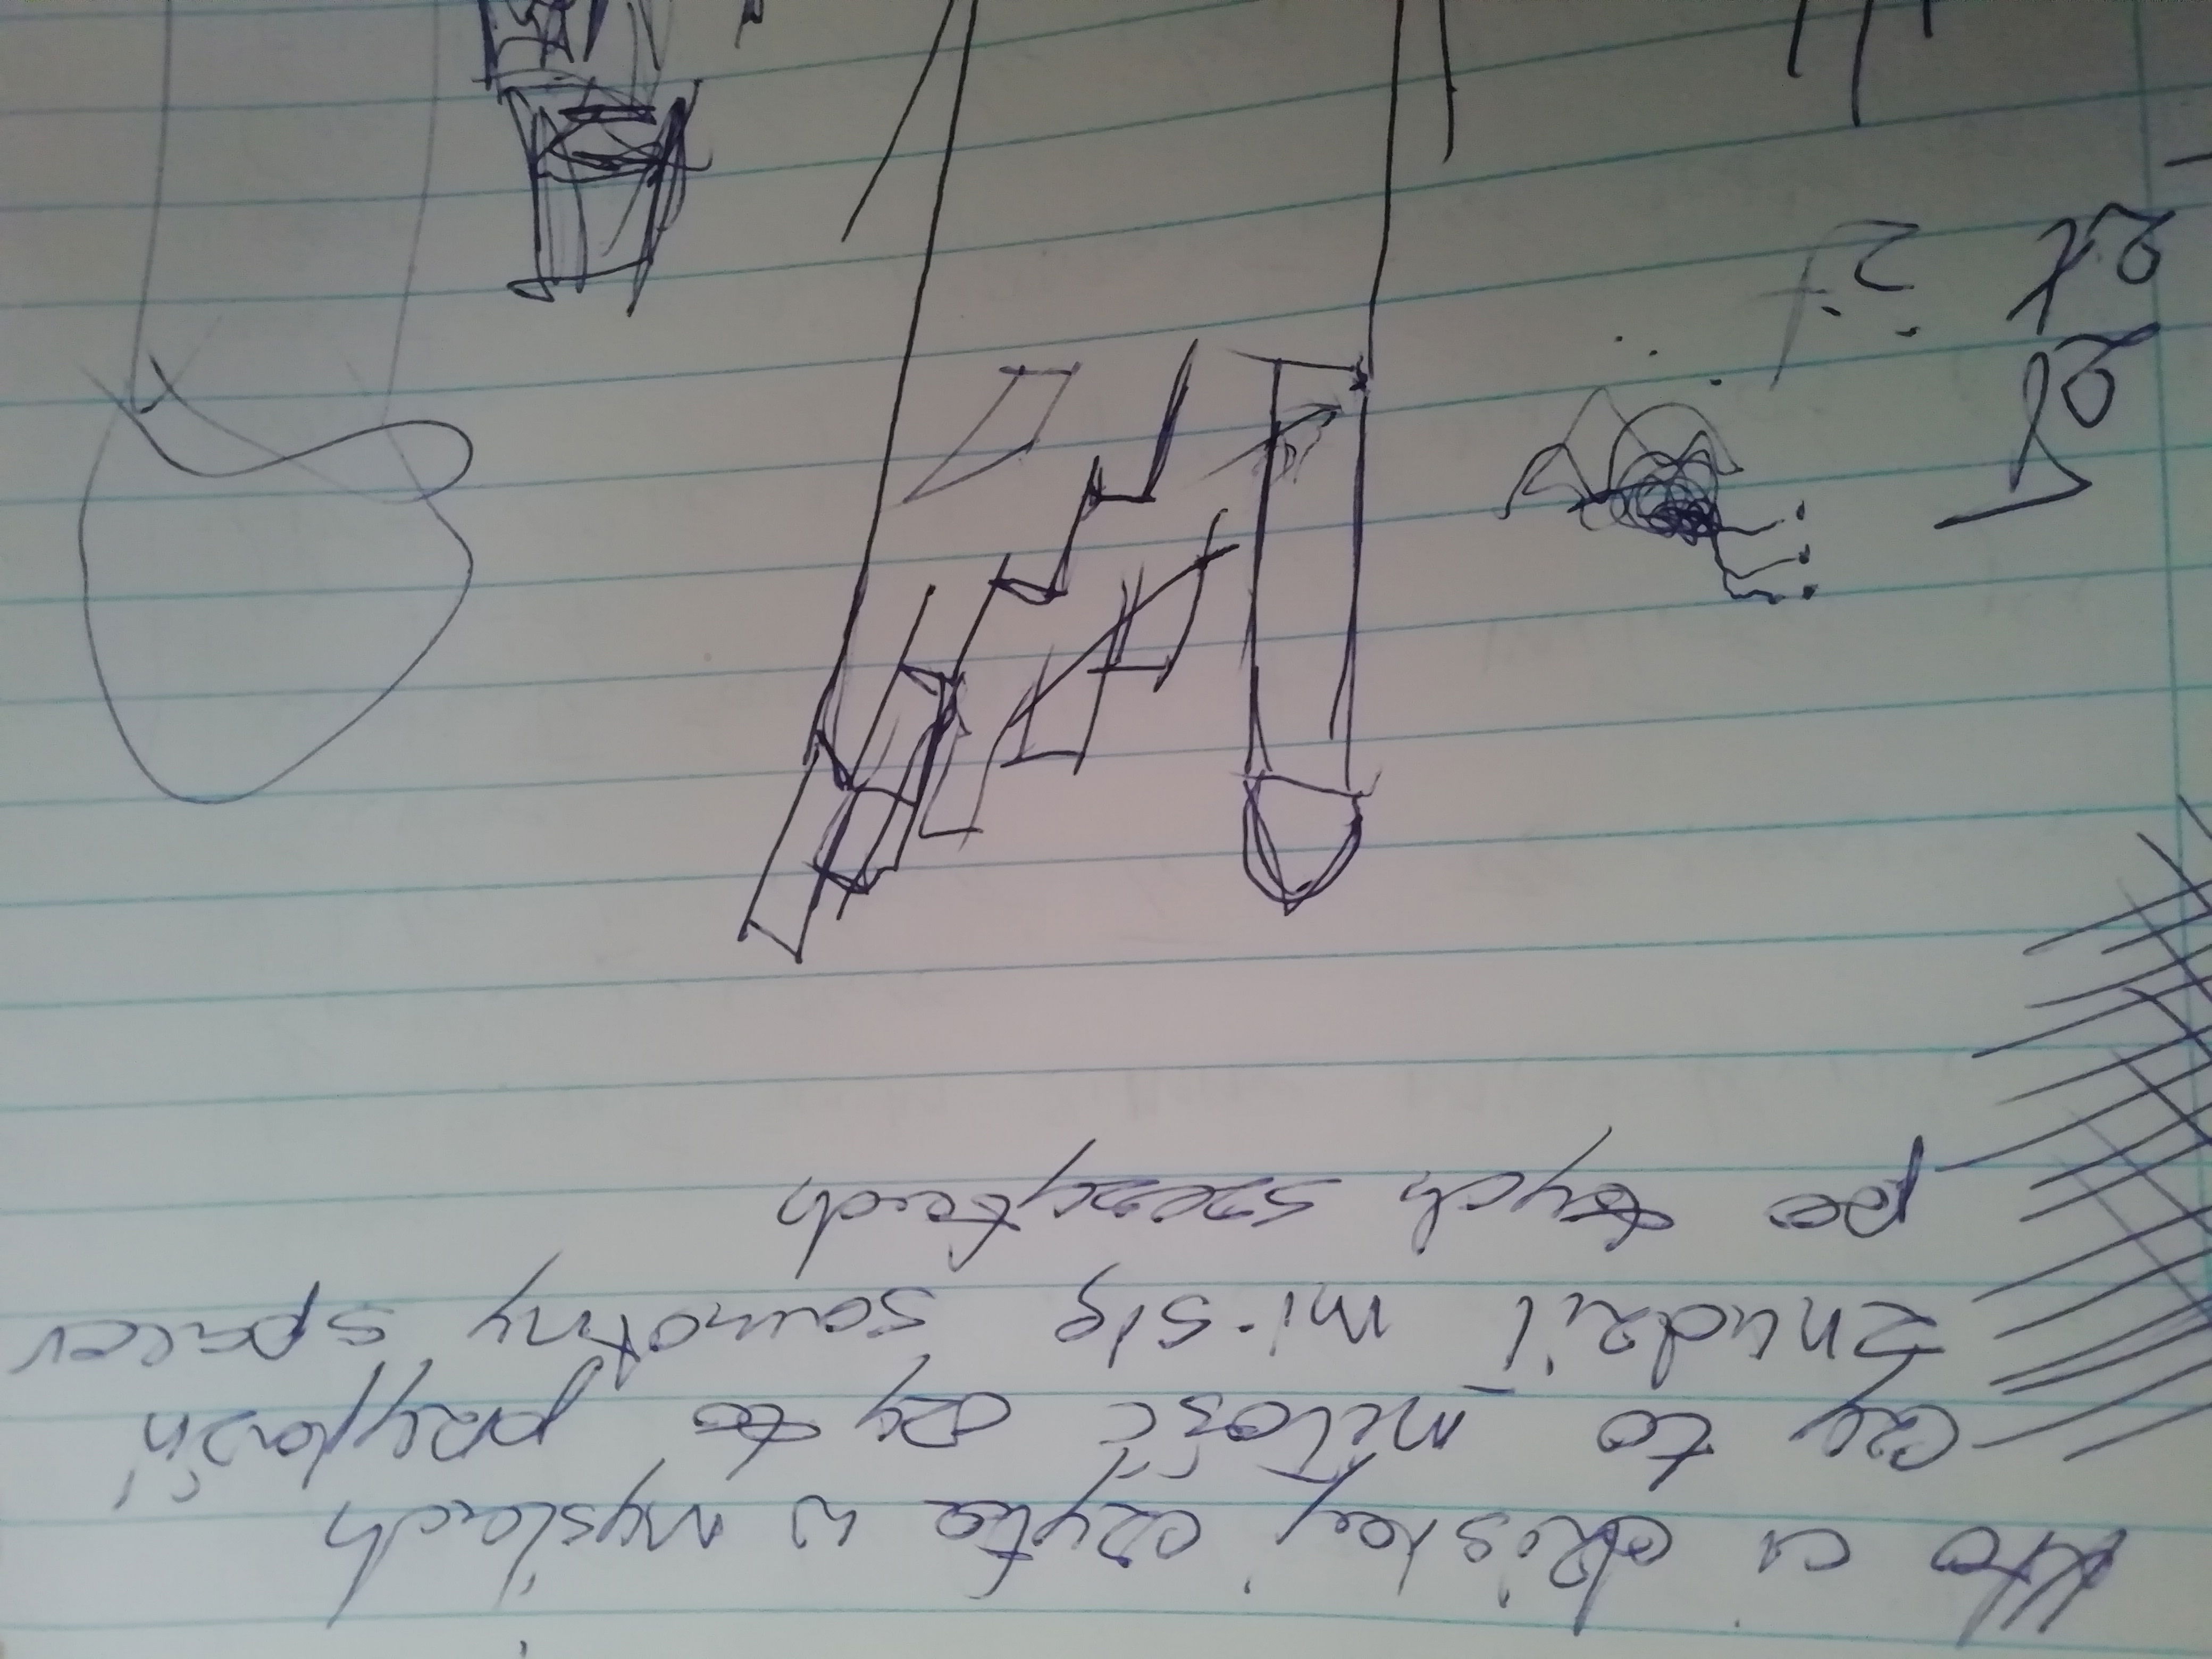 Kto ci dzisiaj czyta w myslach
czy to miłość czy to przyjaźń
Znudził mi się samotny spacer
po tych szczytach